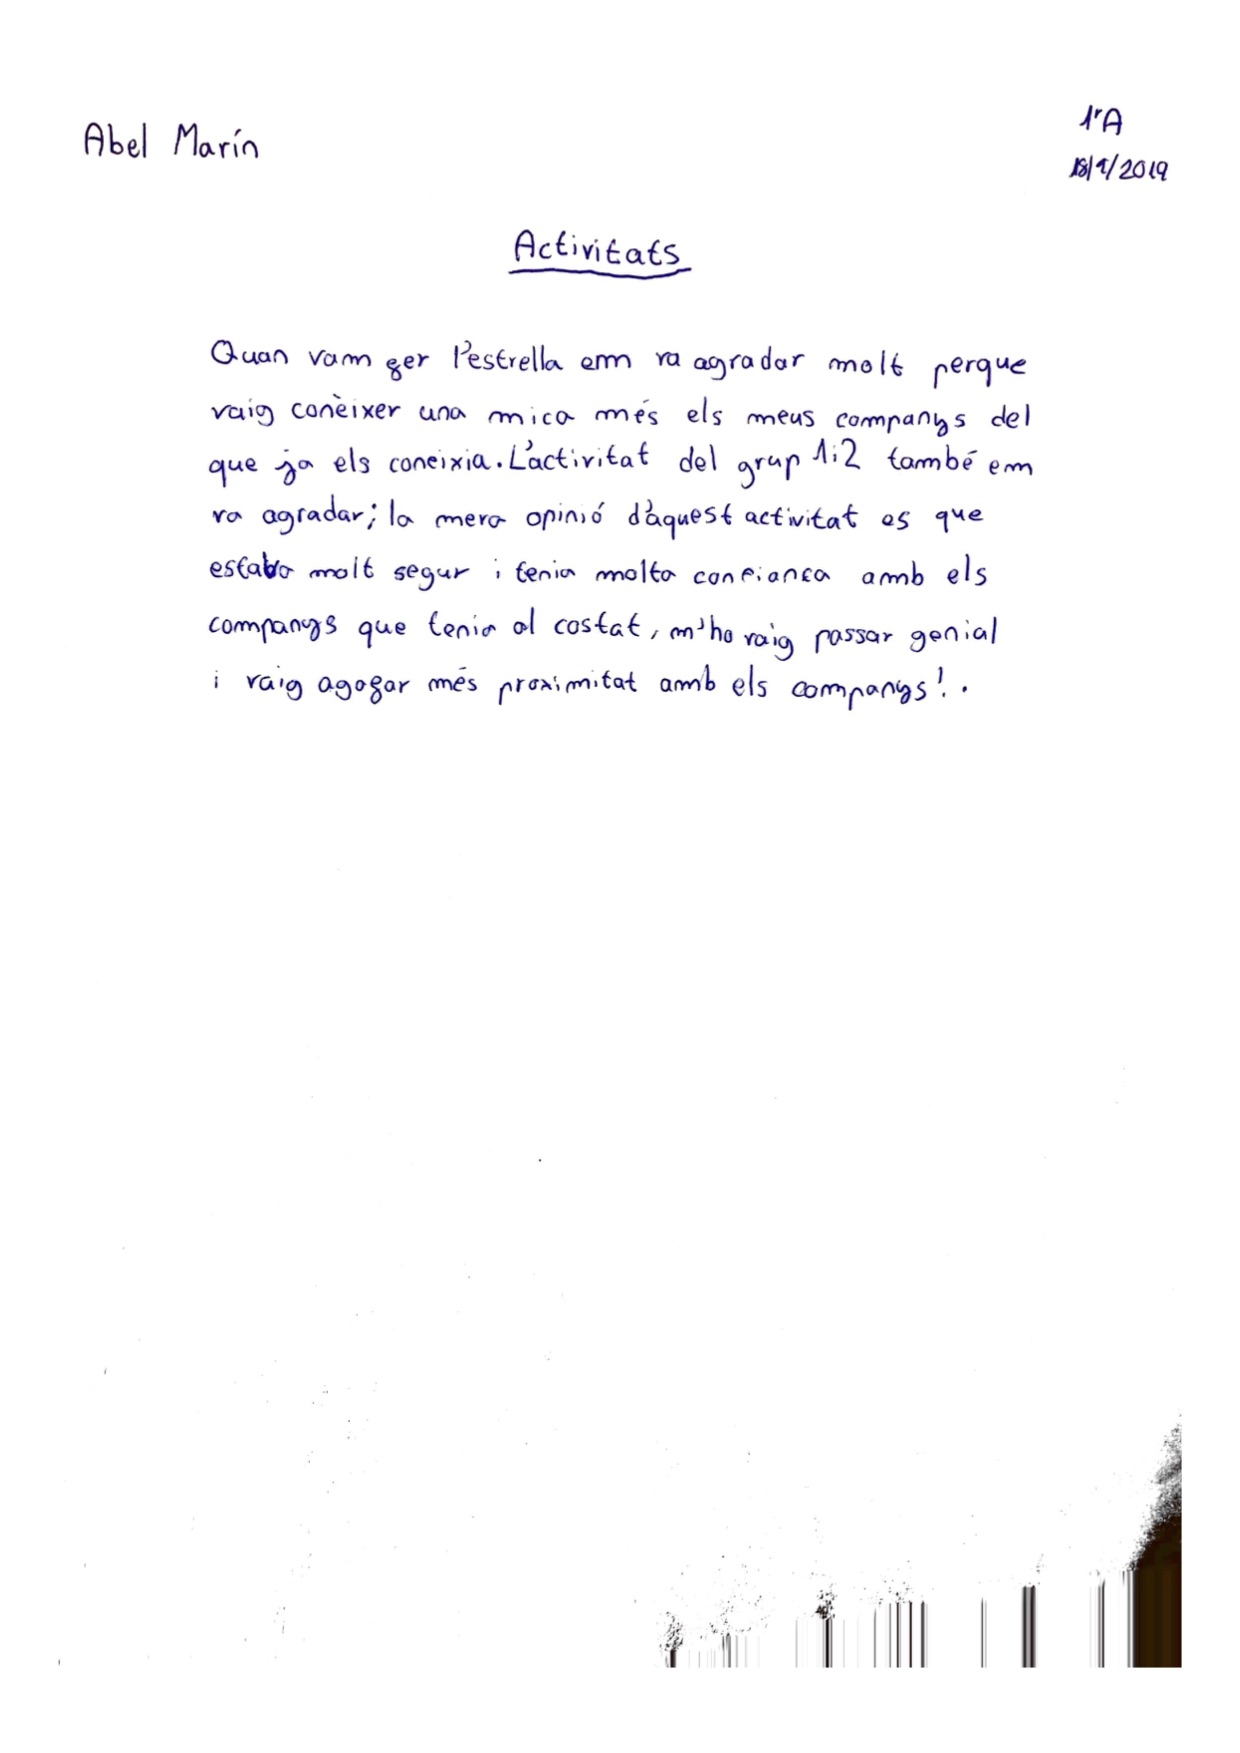 Abel Marín
1rA
18/9/2019
Activitats
Quan vam fer l'estrella em va agradar molt perque
vaig conèixer una mica més els meus companys del
que ja els coneixia. L'activitat del grup 1i2 també em
va agradar; la meva opinió d'aquest activitat es que
estaba molt segur i tenia molta confiança amb els
companys que tenia al costat, m'ho vaig passar genial
i vaig agafar més proximitat amb els companys!.